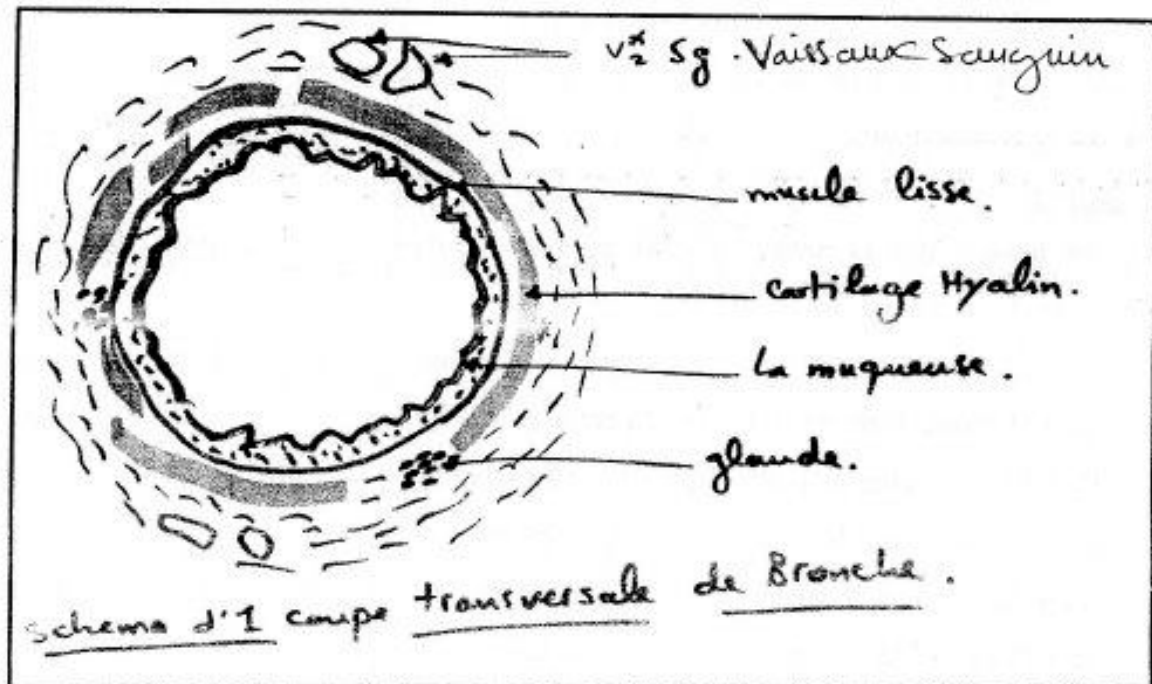 Vx Sg. Vaissaux Sanguin
muscle lisse.
cartilage Hyalin.
la muqueuse.
glande.
schema d'1 coupe transversale de Bronche.